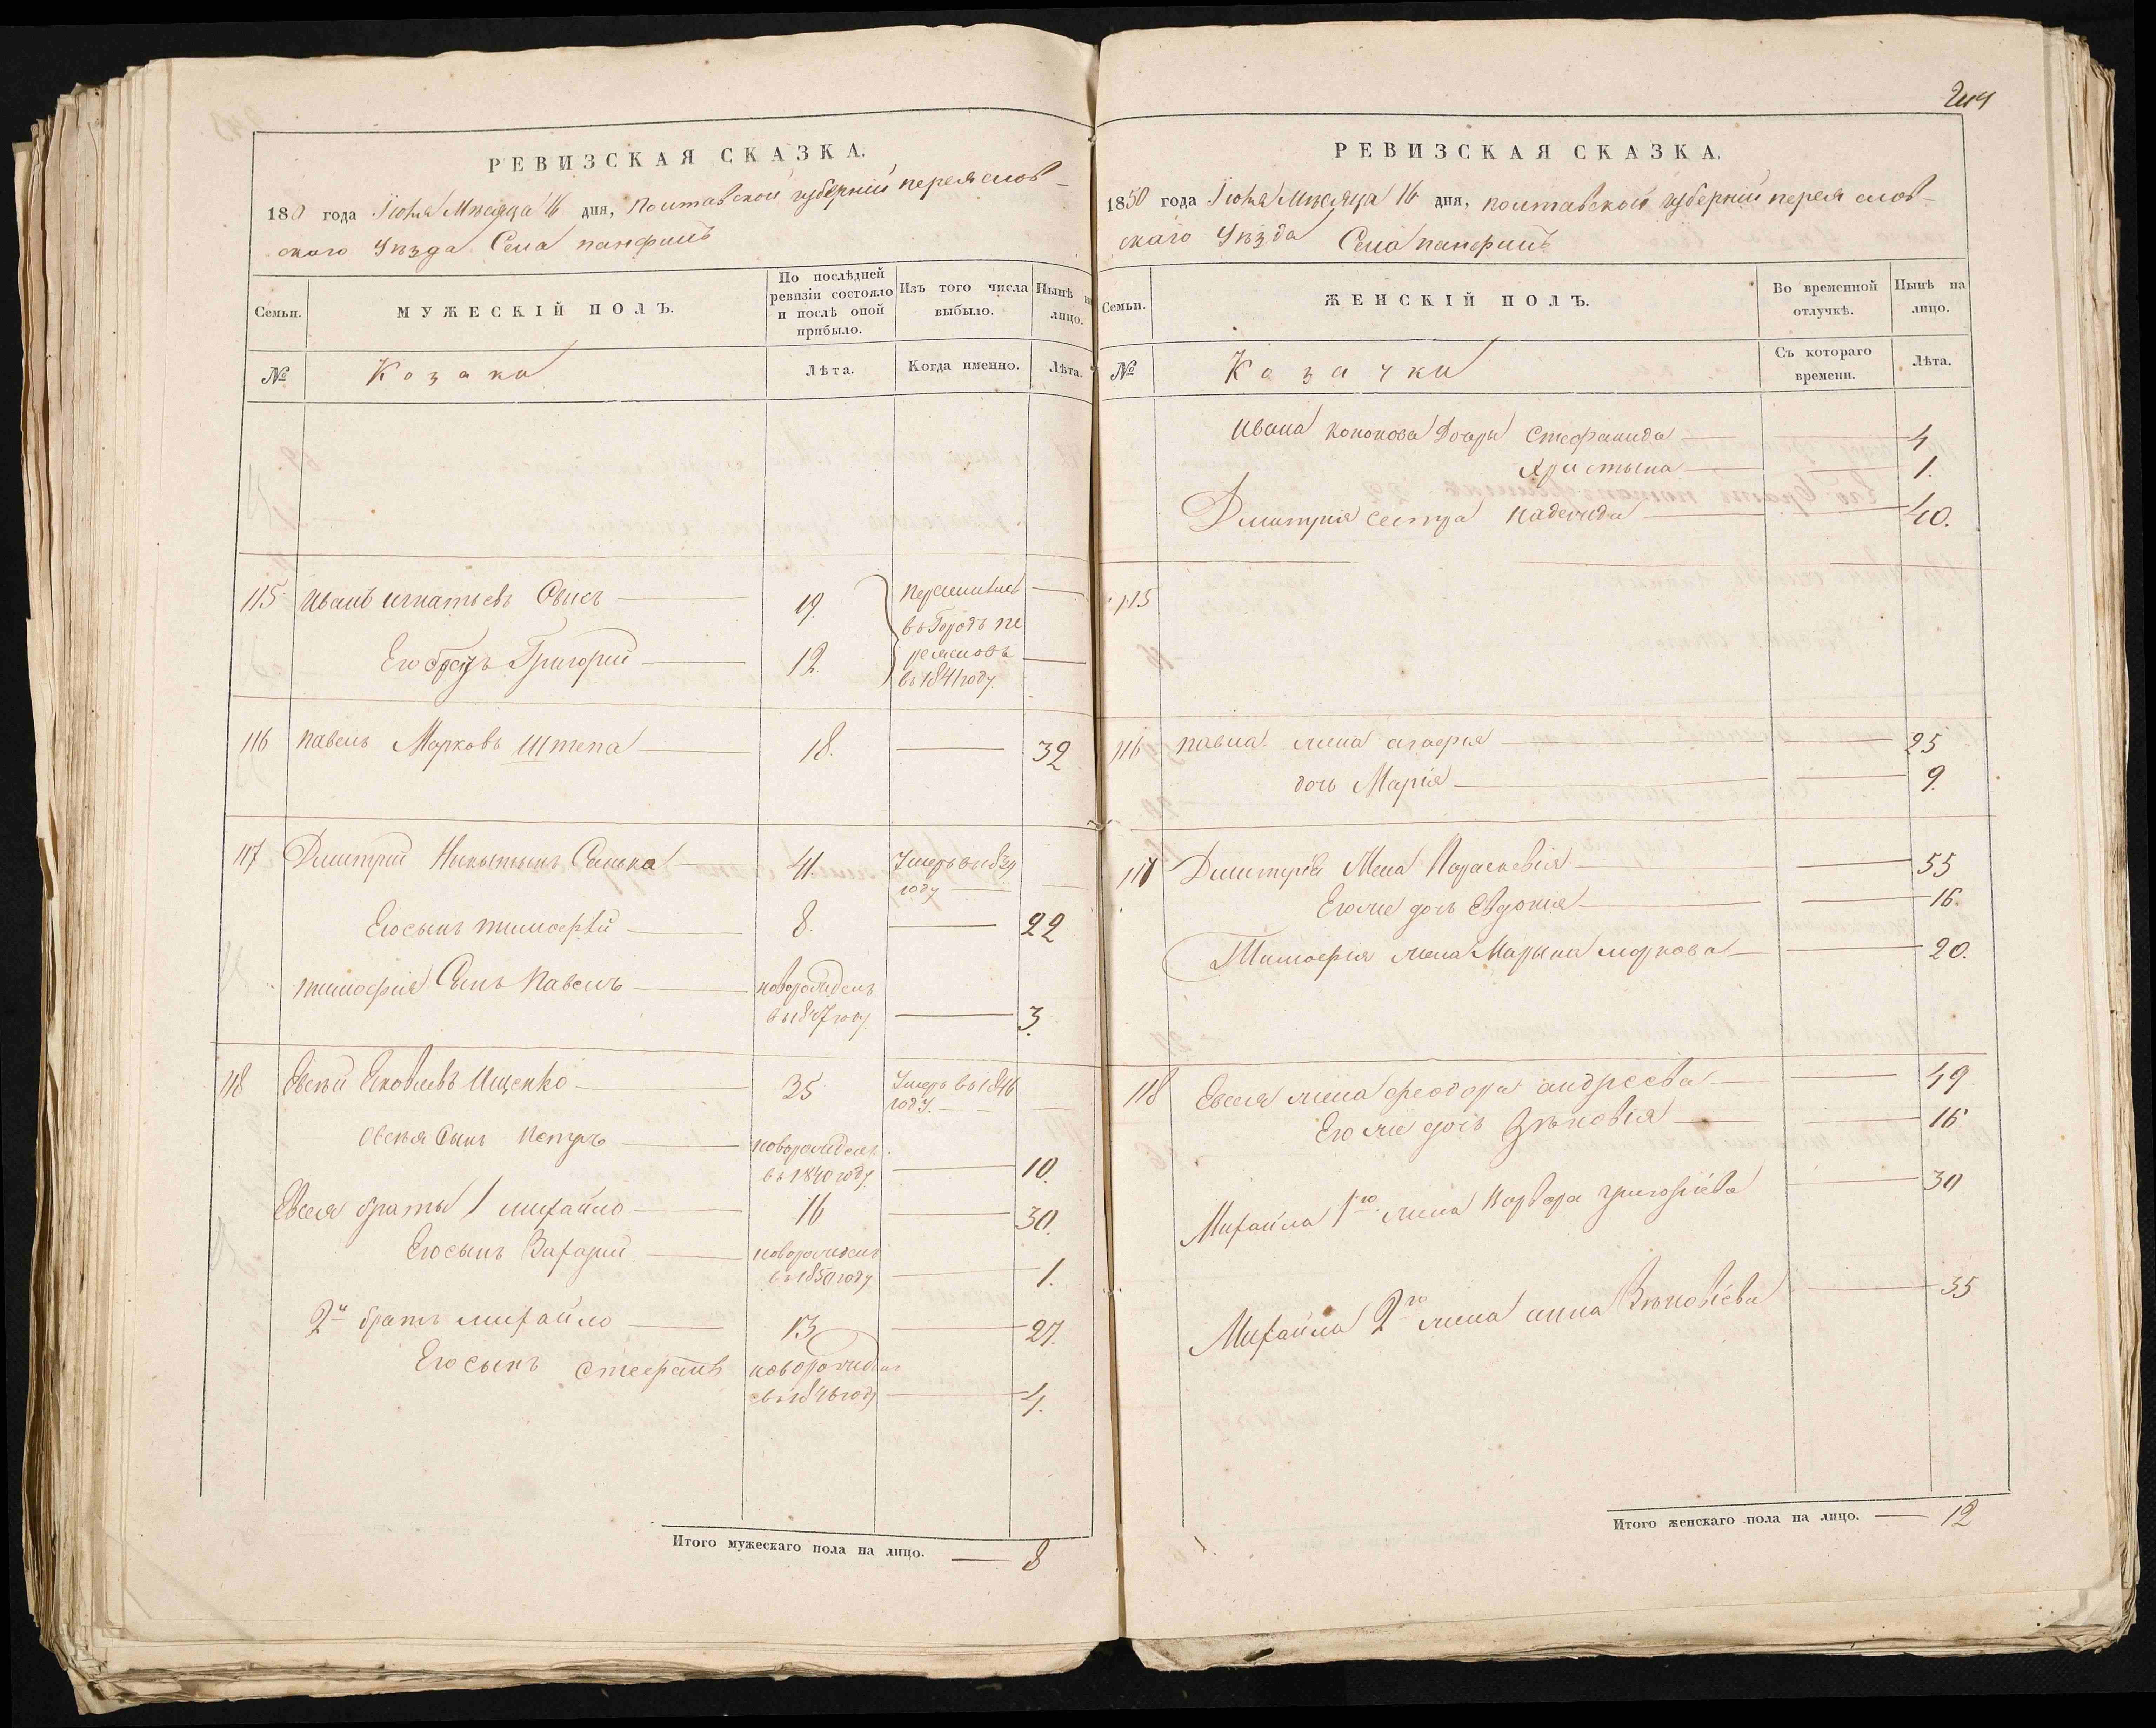 РЕВИЗСКАЯ СКАЗКА.
18 0 года Іюня Мѣсяца 16 дня, Полтавской губерніи переяслов-
скаго Уѣзда Села панфилъ
Семьи.
МУЖЕСКІЙ ПОЛЪ.
По послѣдней ревизіи состояло и послѣ оной прибыло.
Изъ того числа выбыло.
Нынѣ на лицо.
№
Козаки
Лѣта.
Когда именно.
Лѣта.
115 Иванъ игнатьевъ 19. переселились
въ Городъ пе
Его братъ Григорій 12. реяславъ
въ 1841 году.
116 павелъ Марковъ Штепа 18. 32
117 Дмитрій Никитинъ 41 Умеръ в 1839
году
Его сынъ тимофѣй 8. 22
тимофѣя Сынъ Павелъ новорожденъ
в 1847 году 3.
118 Евсѣй Яковлевъ Ищенко 35 Умеръ въ 1846
году.
Овсѣя Сынъ Петръ новорожденъ
въ 1840 году 10.
Евсея братья 1 михайло 16 30.
Его сынъ Захарій новорожденъ
въ 1850 году 1.
2й братъ михайло 13 27.
Его сынъ стефанъ новорожденъ
въ 1846 году 4.
Итого мужескаго пола на лицо. 8
244
РЕВИЗСКАЯ СКАЗКА.
1850 года Іюня Мѣсяца 16 дня, полтавской губерніи переяслов-
скаго Уѣзда Села панфилъ
Семьи.
ЖЕНСКІЙ ПОЛЪ.
Во временной отлучкѣ.
Нынѣ на лицо.
№
Козачки
Съ котораго времени.
Лѣта.
Ивана кононова Дочери Стефанида 4
Христина 1.
Дмитрия сестра надежда 40.
115
116 павла жена агафія 25
дочь Марія 9.
117 Дмитрія Жена Параскевія 55
Его же дочь Евдокія 16.
Тимофея жена Марина маркова 20.
118 Евсея жена феодора андреева 49
Его же дочь Зѣновія 16
Михайла 1го жена Варвара григоріева 30
Михайла 2го жена анна Зѣновіева 35
Итого женскаго пола на лицо. 12